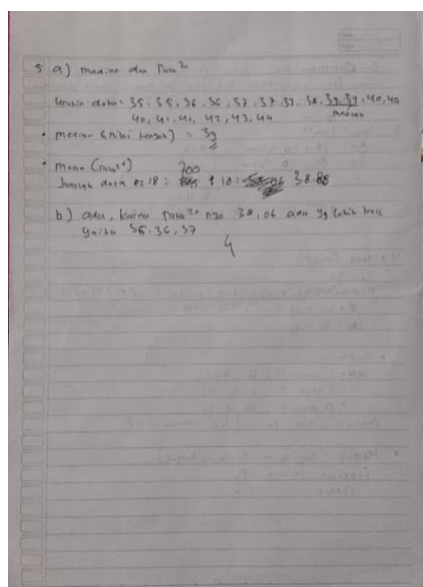 5 a) median dan rata²
Urutin data = 35. 35, 36, 36, 37, 37, 37, 38, 39, 39, 40, 40
median
40, 41, 41, 42, 43, 44
• median (nilai tengah) = 39
• mean (rata²)
700
Jumlah data : 18 = : 18 = 38.88
b) ada, karna rata² nya 38,06 ada yg lebih kecil
yaitu 35, 36, 37
4